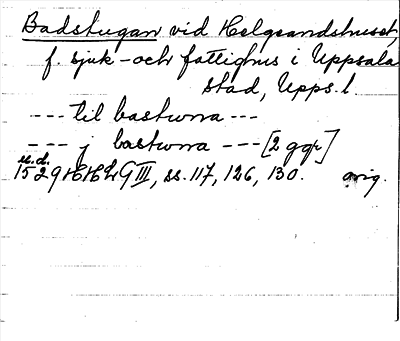 Badstugan vid Helgeandshuset,
f. sjuk- och fattighus i Uppsala
stad, Upps. l.
--- til bastwra ---
--- j bastwra --- [2 ggr]
u.d.
1529 HH2 G III, ss. 117, 126, 130. orig.